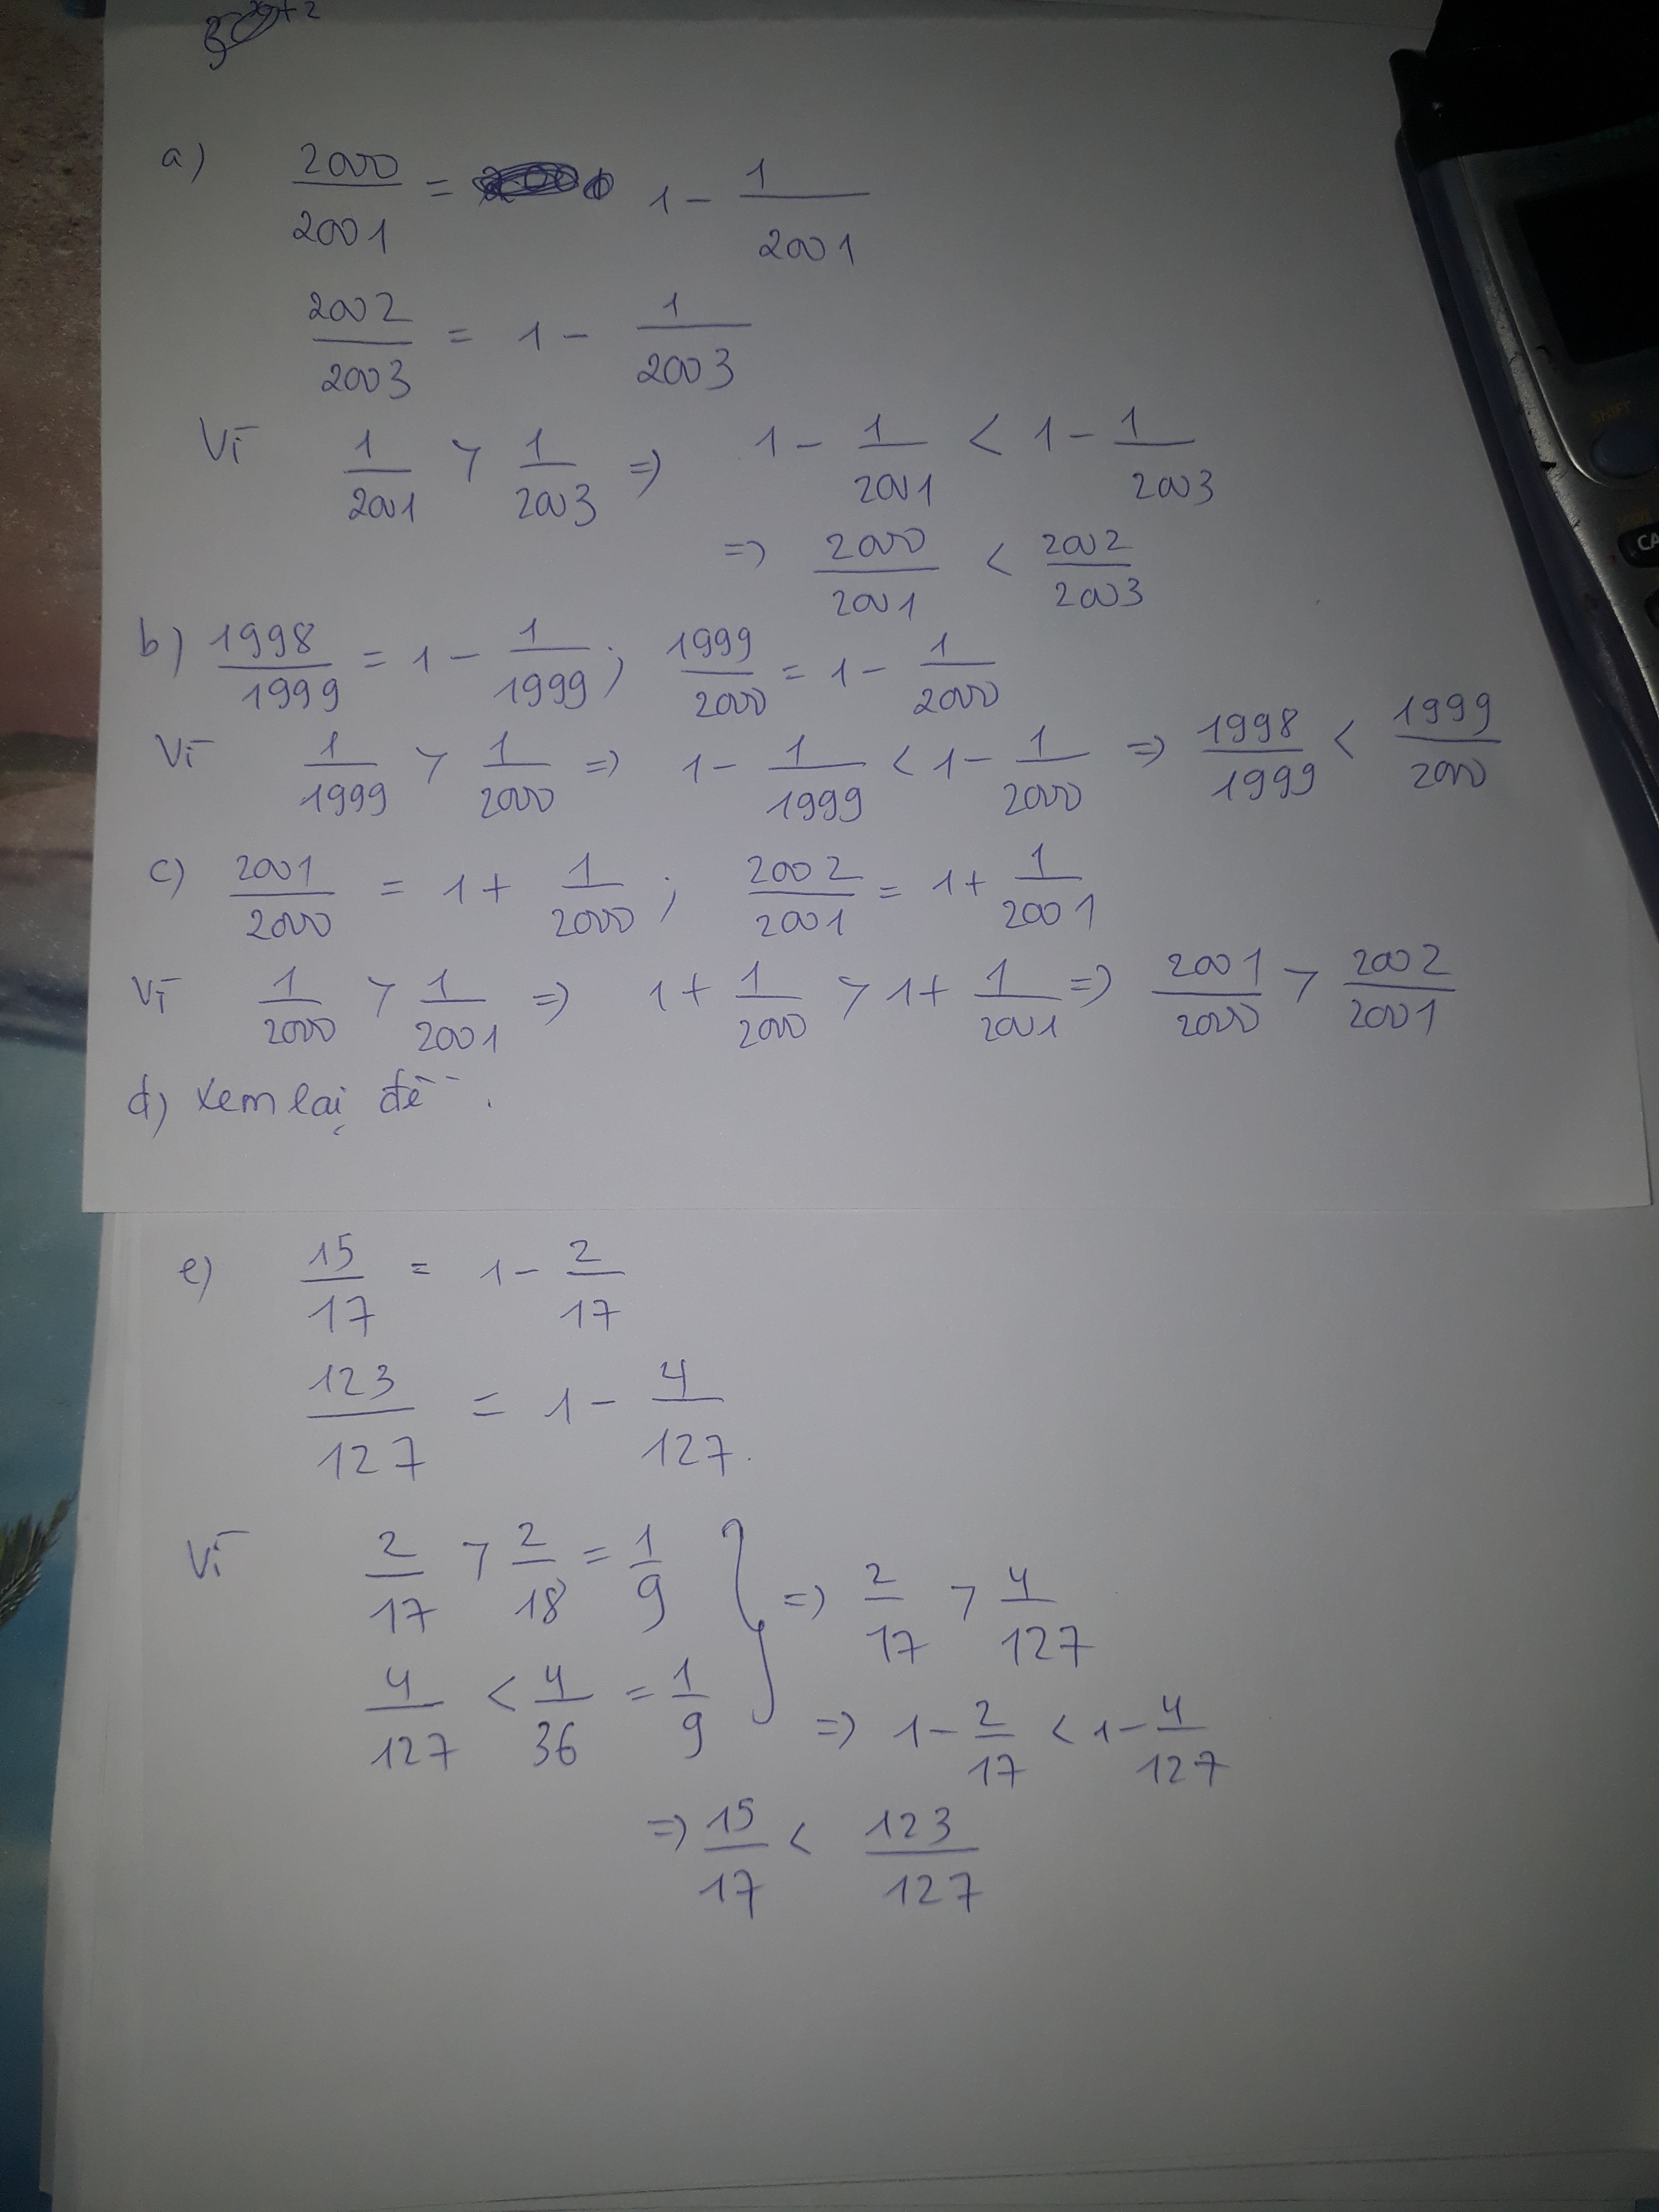 a) 2000/2001 = 1 - 1/2001
2002/2003 = 1 - 1/2003
Vì 1/2001 > 1/2003 => 1 - 1/2001 < 1 - 1/2003
=> 2000/2001 < 2002/2003
b) 1998/1999 = 1 - 1/1999 ; 1999/2000 = 1 - 1/2000
Vì 1/1999 > 1/2000 => 1 - 1/1999 < 1 - 1/2000 => 1998/1999 < 1999/2000
c) 2001/2000 = 1 + 1/2000 ; 2002/2001 = 1 + 1/2001
Vì 1/2000 > 1/2001 => 1 + 1/2000 > 1 + 1/2001 => 2001/2000 > 2002/2001
d) Xem lại đề .
e) 15/17 = 1 - 2/17
123/127 = 1 - 4/127.
Vì 2/17 > 2/18 = 1/9
4/127 < 4/36 = 1/9
} => 2/17 > 4/127
=> 1 - 2/17 < 1 - 4/127
=> 15/17 < 123/127
SHIFT
CA